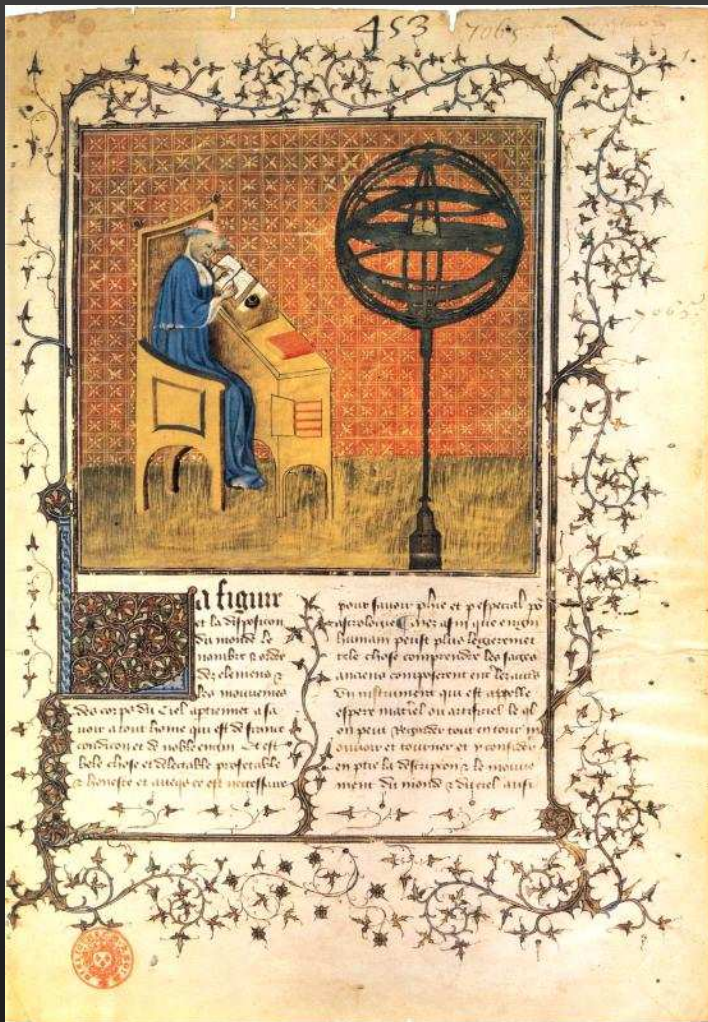 453 7065
7065
La figure
et la disposicion
du monde le
nombre & ordre
des elemens &
les mouvemens
des corps du Ciel aptiennet a sa
voir a tout home qui est de franche
condicion et de noble engin Et est
bele chose et delectable profetable
& honeste et avecqs ce est necessaire
pour savoir phie et p especial po
astrologie
humain puist plus legierement
tele chose comprendre les sages
anciens composerent ent les autres
un instrument qui est appelle
espere materiel ou artificiel le ql
on peut regarder tout en tour
mouvoir et tourner et y considerer
en ptie la descripcion & le mouve
ment du monde & du ciel ausi